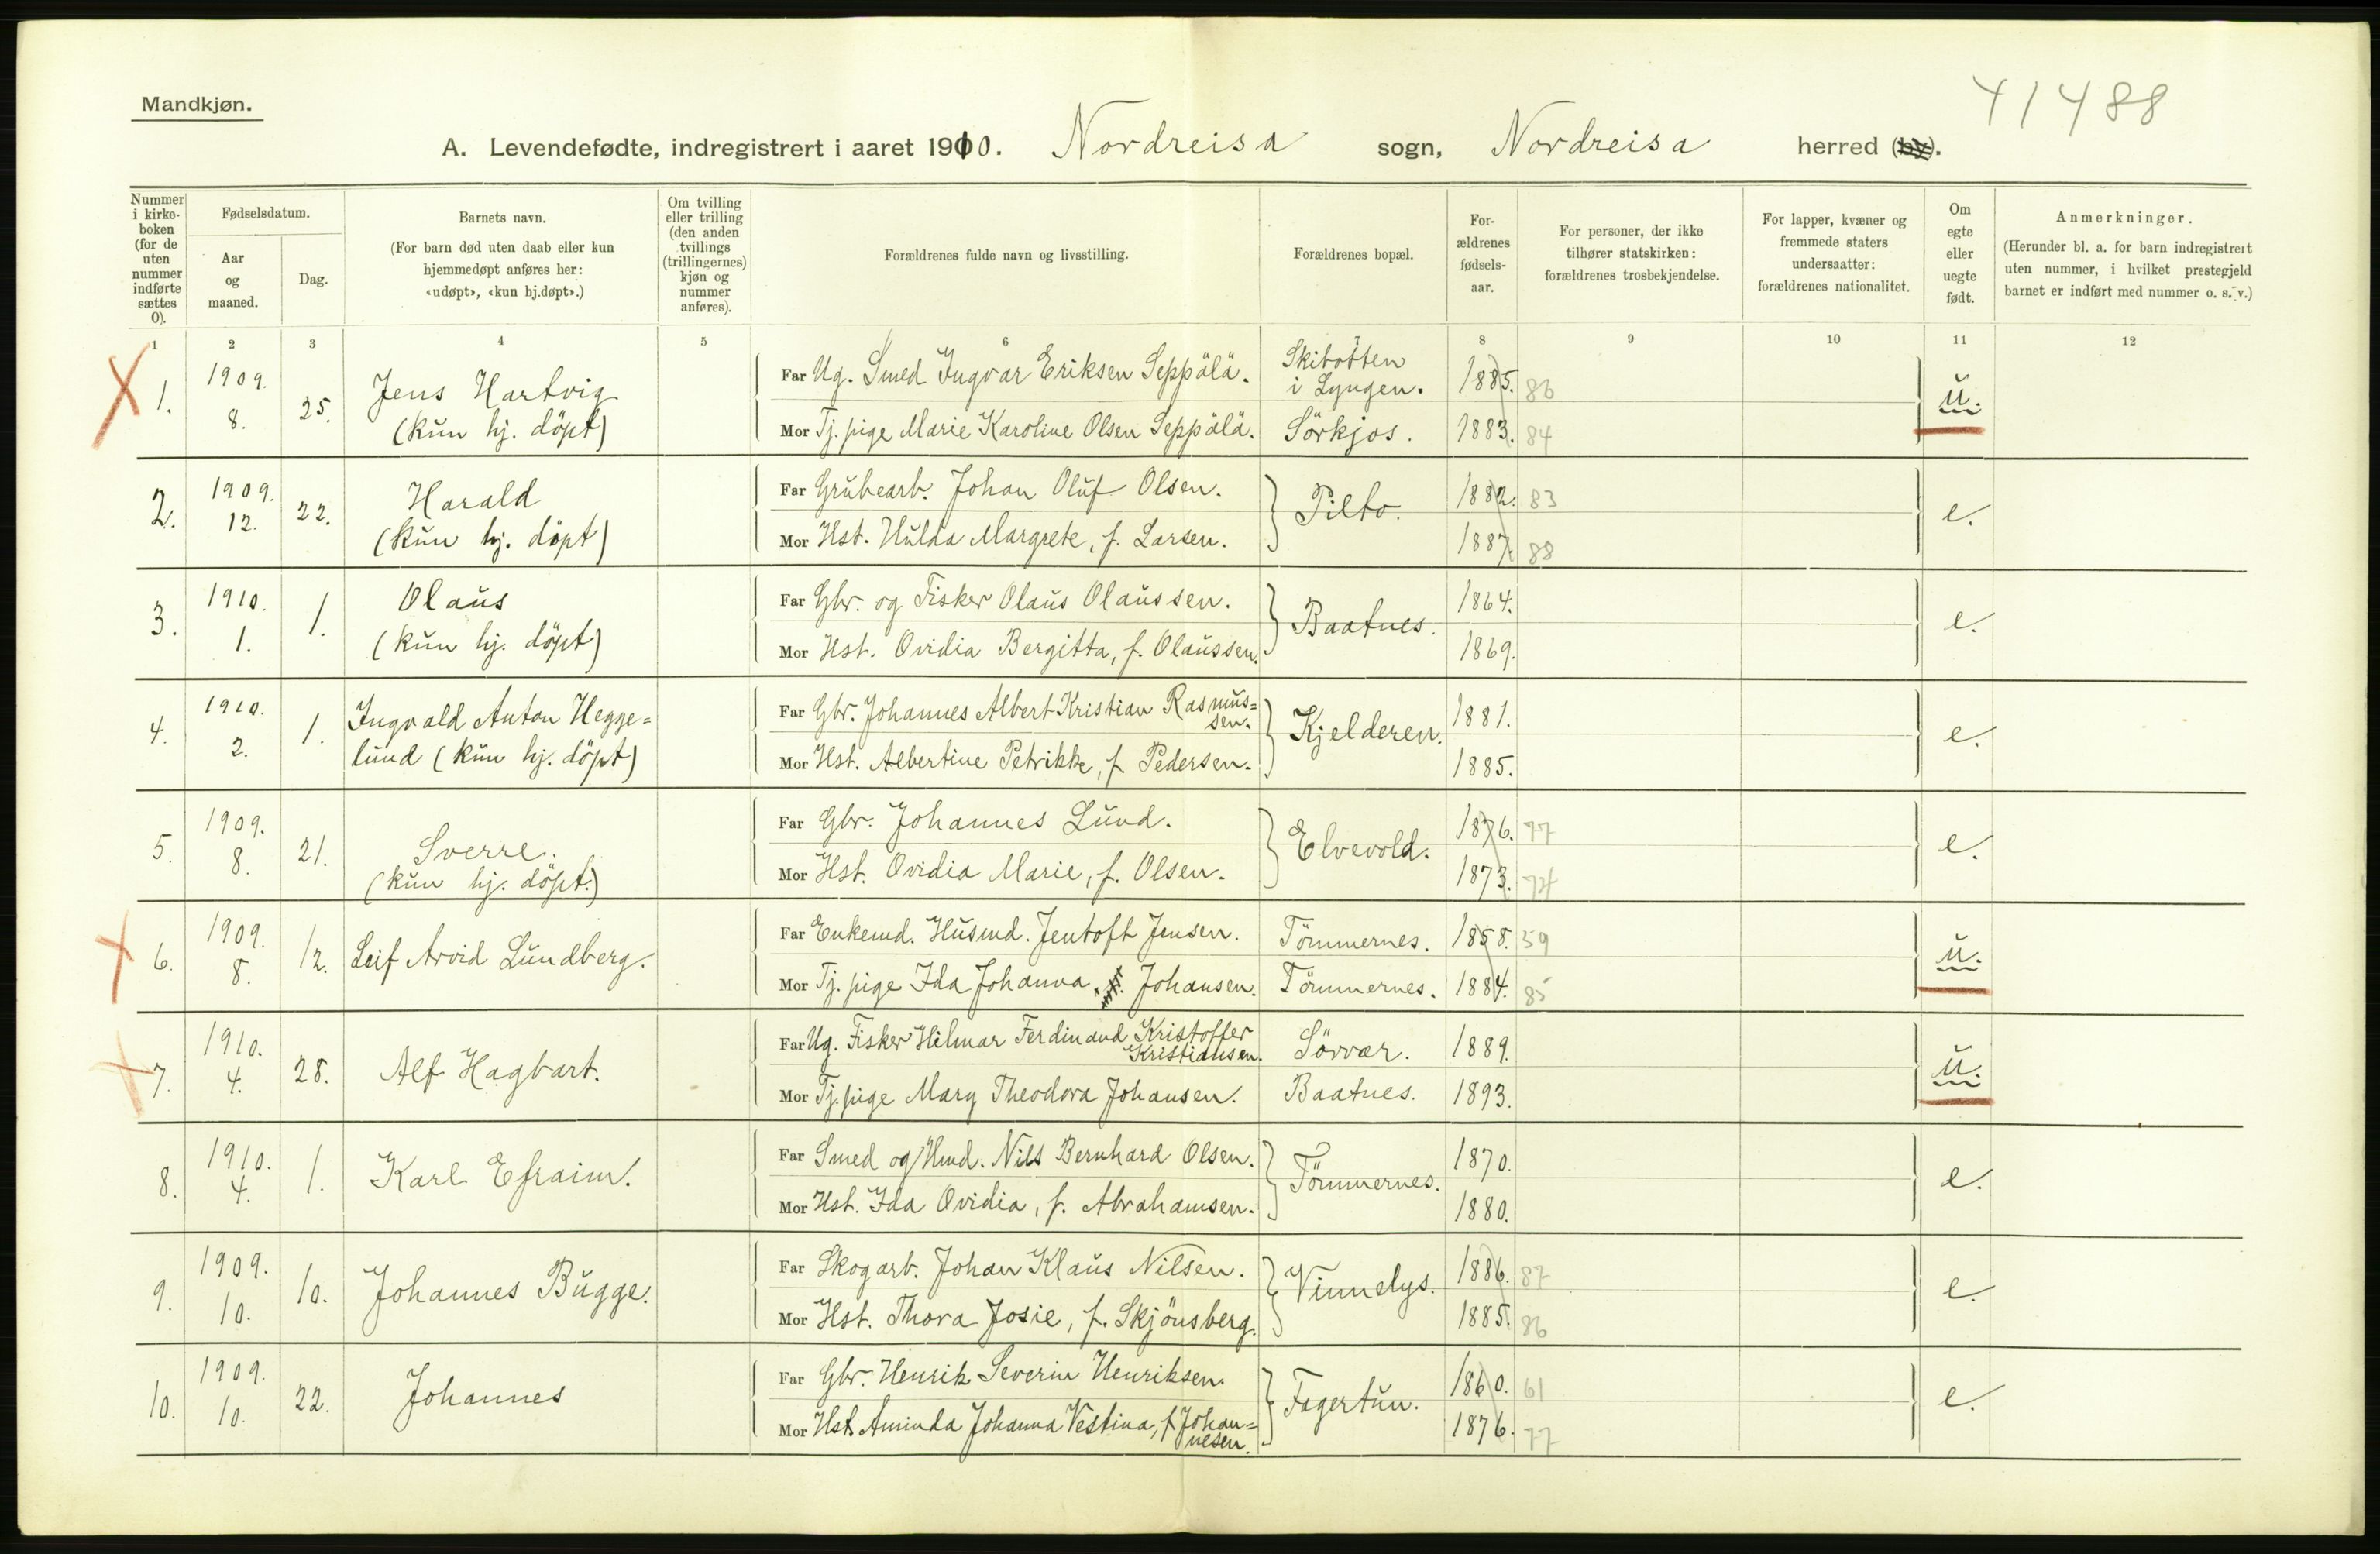 Mandkjøn.
41488
A. Levendefødte, indregistrert i aaret 1910. Nordreisa sogn, Nordreisa herred (by).
Nummer i kirke-boken (for de uten nummer indførte sættes 0).
Fødselsdatum.
Aar og maaned.
Dag.
Barnets navn.
(For barn død uten daab eller kun hjemmedøpt anføres her: «udøpt», «kun hj.døpt».)
Om tvilling eller trilling (den anden tvillings (trillingernes) kjøn og nummer anføres).
Forældrenes fulde navn og livsstilling.
Forældrenes bopæl.
For-ældrenes fødsels-aar.
For personer, der ikke tilhører statskirken: forældrenes trosbekjendelse.
For lapper, kvæner og fremmede staters undersaatter: forældrenes nationalitet.
Om egte eller uegte født.
Anmerkninger.
(Herunder bl. a. for barn indregistrert uten nummer, i hvilket prestegjeld barnet er indført med nummer o. s. v.)
1 2 3 4 5 6 7 8 9 10 11 12
1. 1909. 8. 25. Jens Hartvig (kun hj. döpt)
Far Ug. Smed Ingvar Eriksen Seppälä. Skibotten i Lyngen. 1885. 86
Mor Tj. pige Marie Karoline Olsen Seppälä. Sörkjos. 1883. 84
u.
2. 1909. 12. 22. Harald (kun hj. döpt)
Far Grubearb. Johan Oluf Olsen. Pilto. 1882. 83
Mor Hst. Hulda Margrete, f. Larsen. 1887. 88
e.
3. 1910. 1. 1. Olaus (kun hj. döpt)
Far Gbr. og Fisker Olaus Olaussen. Baatnes. 1864.
Mor Hst. Ovidia Bergitta, f. Olaussen. 1869.
e.
4. 1910. 2. 1. Ingvald Anton Hegge=lund (kun hj. döpt)
Far Gbr. Johannes Albert Kristian Rasmus=sen. Kjelderen. 1881.
Mor Hst. Albertine Petrikke, f. Pedersen. 1885.
e.
5. 1909. 8. 21. Sverre. (kun hj. döpt.)
Far Gbr. Johannes Lund. Elvevold. 1876. 77
Mor Hst. Ovidia Marie, f. Olsen. 1873. 74
e.
6. 1909. 8. 12. Leif Arvid Lundberg.
Far Enkemd. Husmd. Jentoft Jensen. Tömmernes. 1858. 59
Mor Tj. pige Ida Johanna Johansen. Tömmernes. 1884. 85
u.
7. 1910. 4. 28. Alf Hagbart.
Far Ug. Fisker Hilmar Ferdinand Kristoffer Kristiansen. Sörvær. 1889.
Mor Tj. pige Mary Theodora Johansen. Baatnes. 1893.
u.
8. 1910. 4. 1. Karl Efraim.
Far Smed og Hmd. Nils Bernhard Olsen. Tömmernes. 1870.
Mor Hst. Ida Ovidia, f. Abrahamsen. 1880.
e.
9. 1909. 10. 10. Johannes Bugge.
Far Skogarb. Johan Klaus Nilsen. Vinnelys. 1886. 87
Mor Hst. Thora Josie, f. Skjönsberg. 1885. 86
e.
10. 1909. 10. 22. Johannes
Far Gbr. Henrik Severin Henriksen. Fagertun. 1860. 61
Mor Hst. Aminda Johanna Vestina, f. Johan=nesen. 1876. 77
e.